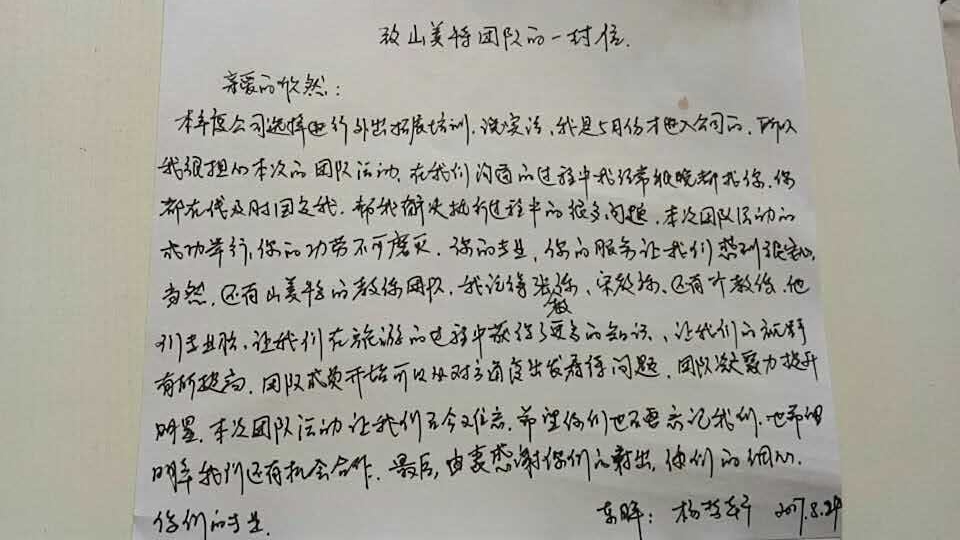 致山美特团队的一封信.
亲爱的悠然:
本年度公司选择进行外出拓展培训.说实话,我是5月份才进入公司的.所以
我很担心本次的团队活动.在我们沟通的过程中我经常很晚都找你.你
都在及时回复我.帮我解决执行过程中的很多问题.本次团队活动的
成功举行,你的功劳不可磨灭.你的专业,你的服务让我们感到很安心.
当然,还有山美特的教练团队.我记得张教练、宋教练.还有个教练.他
们专业性.让我们在旅游的过程中获得了更多的知识、让我们的视野
有所提高.团队成员开始可以从对方角度出发看待问题.团队凝聚力提升
明显.本次团队活动让我们至今难忘.希望你们也不要忘记我们.也希望
明年我们还有机会合作.最后,由衷感谢你们的付出,你们的细心.
你们的专业. 2017.8.29